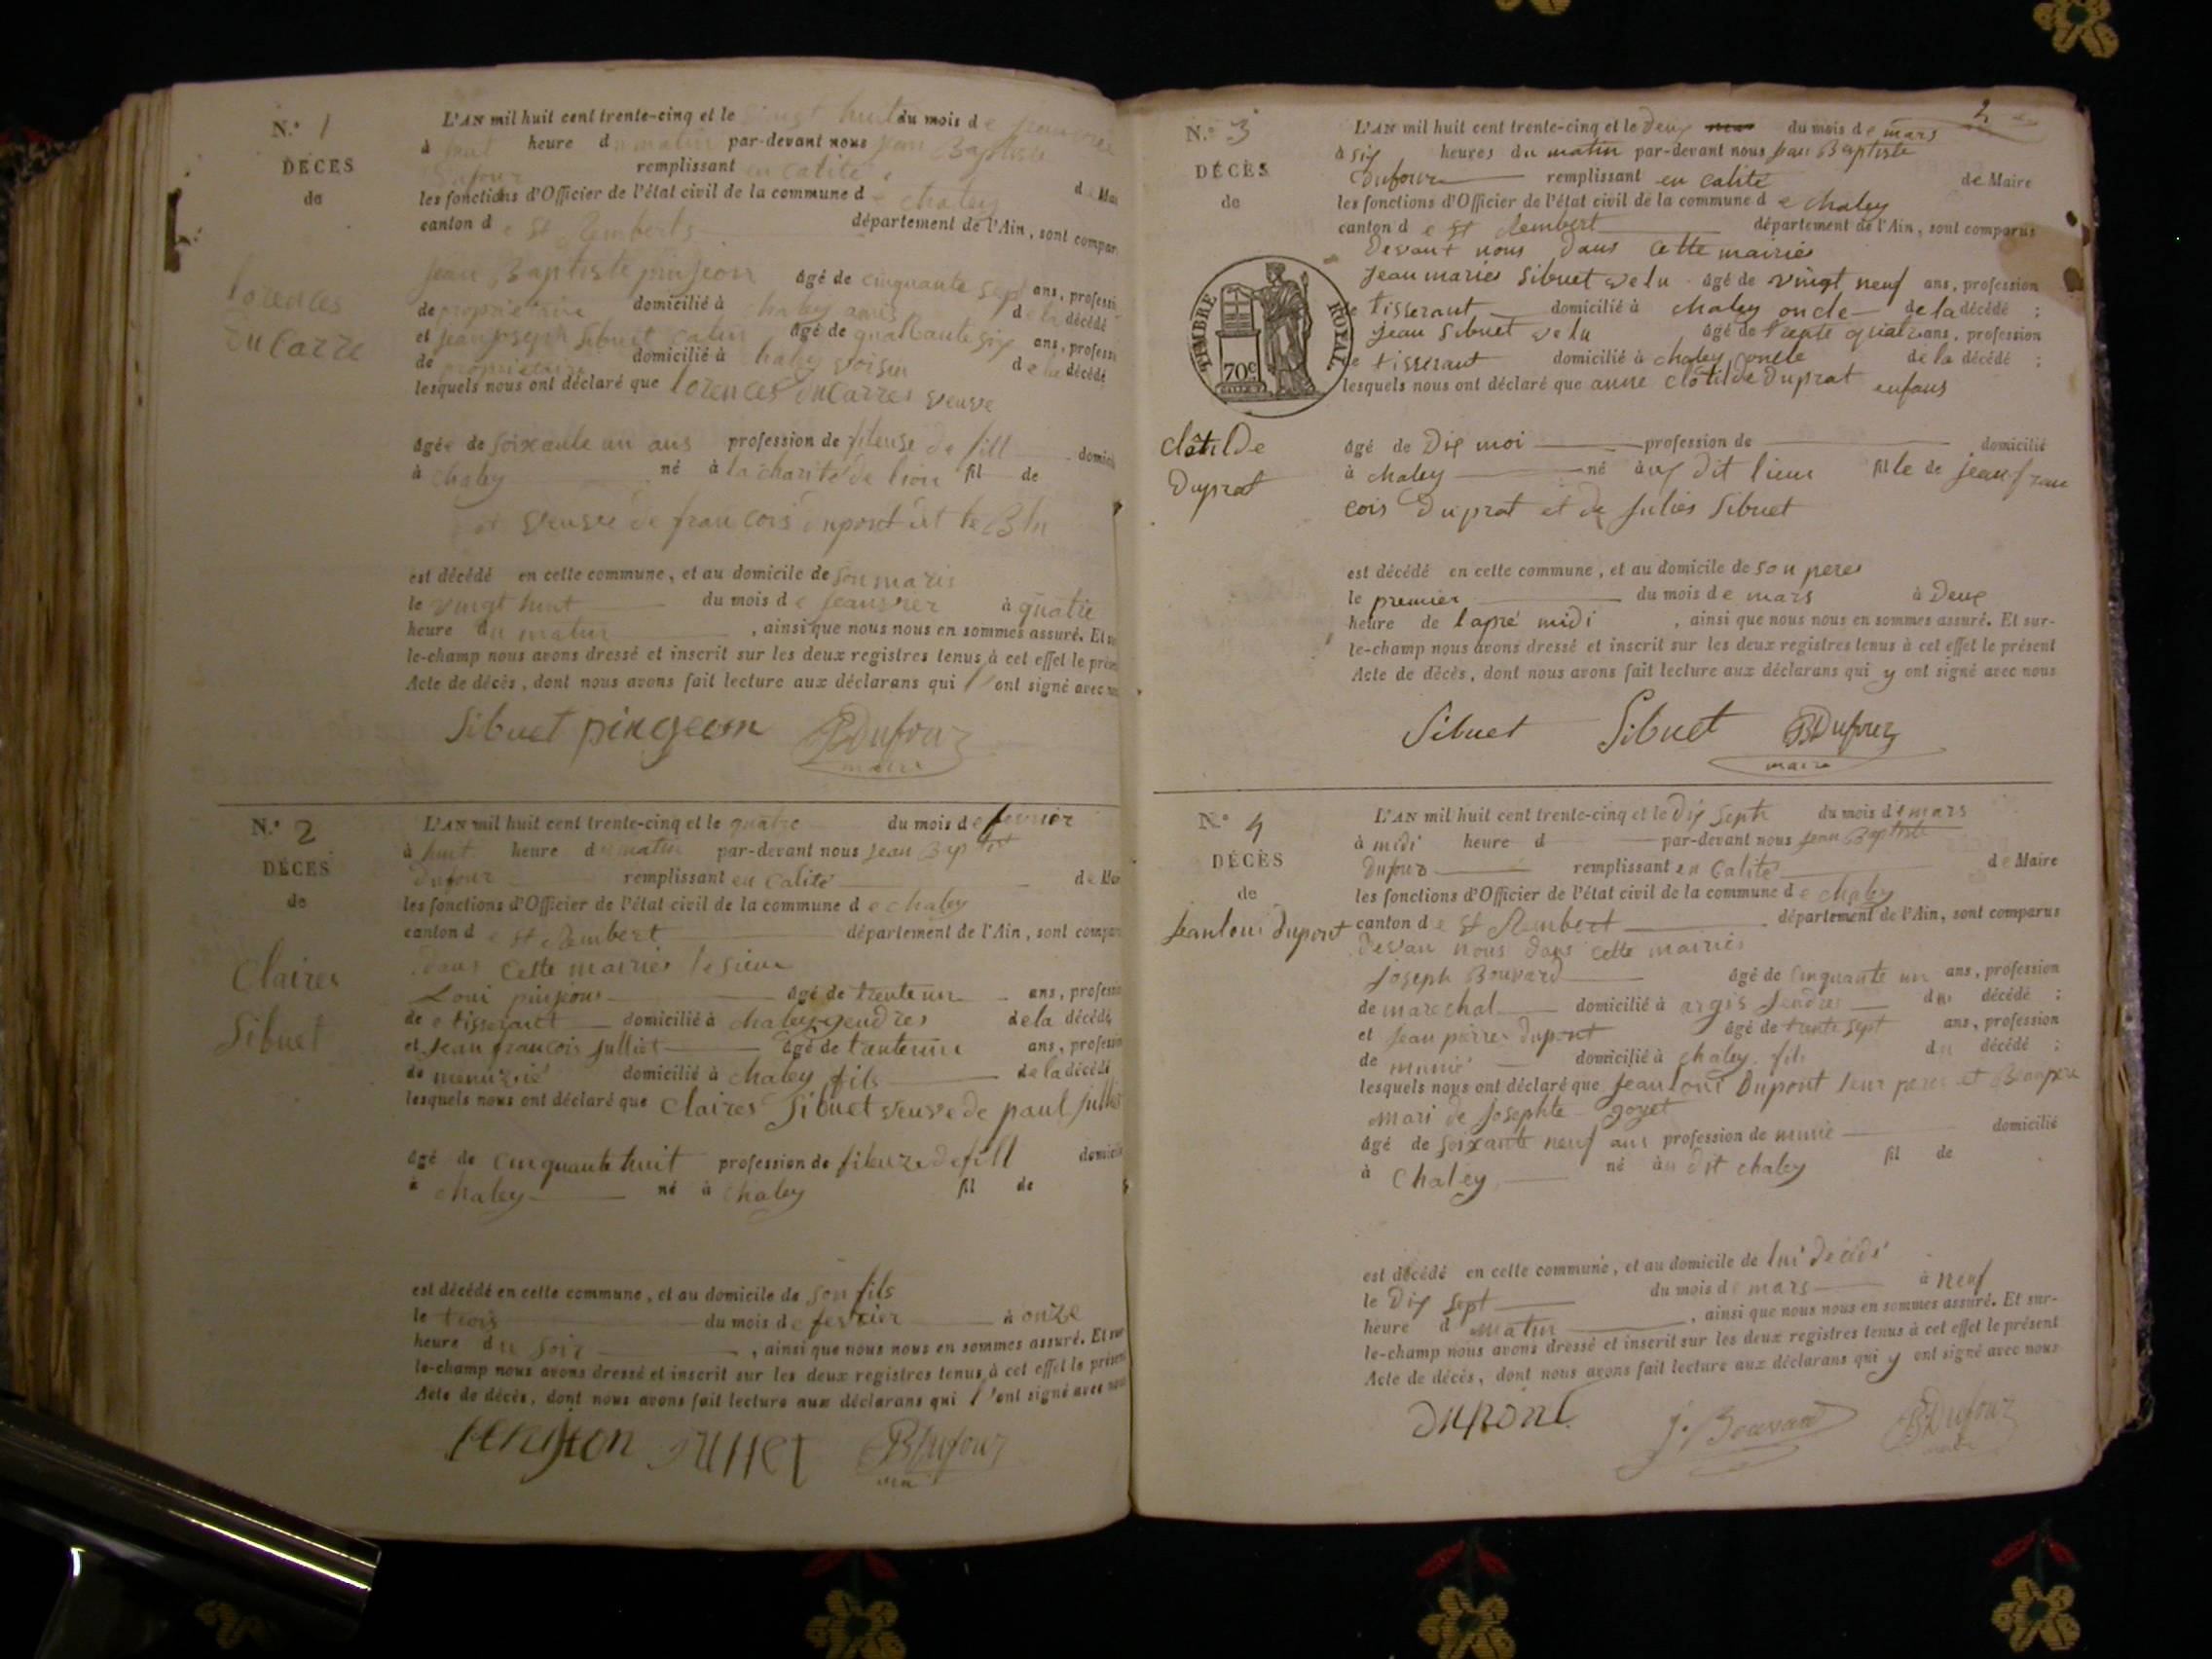 N.° 1
DÉCÈS
de
lorences
ducarre
L'AN mil huit cent trente-cinq et le vingt huit du mois de
à huit heure du matin par-devant nous jean Baptiste
Dufour remplissant en calité
les fonctions d'Officier de l'état civil de la commune de chaley
canton de St Remberts département de l'Ain, sont compar
jean Baptiste pinjeon âgé de cinquante sept ans, professi
de propriétaire domicilié à chaley amis de la décédé
et jean joseph Sibuet catin âgé de quallante six ans, professi
de propriétaire domicilié à chaley voisin de la décédé
lesquels nous ont déclaré que lorences ducarres veuve
âgée de soixante un ans profession de fileuse de fill domici
à chaley né à la charité de lion fil de
et veuve de francois dupont dit le
est décédé en cette commune, et au domicile de son maris
le vingt huit du mois de jeanvier à quatre
heure du matin , ainsi que nous nous en sommes assuré. Et su
le-champ nous avons dressé et inscrit sur les deux registres tenus à cet effet le prése
Acte de décès, dont nous avons fait lecture aux déclarans qui l'ont signé avec no
Sibuet pingeon JBDufour
maire
N.° 2
DÉCÈS
de
Claires
Sibuet
L'AN mil huit cent trente-cinq et le quatre du mois de fevrier
à huit heure du matin par-devant nous jean Baptist
Dufour remplissant en calité de Mai
les fonctions d'Officier de l'état civil de la commune de chaley
canton de St Rembert département de l'Ain, sont compar
dans cette mairies le sieur
Loui pinjeons âgé de trente un ans, professi
de tisserant domicilié à chaley gendres de la décédé
et jean francois julliet âgé de tanteun ans, professi
de menuzié domicilié à chaley fils de la décédé
lesquels nous ont déclaré que Claires Sibuet veuve de paul julliet
âgé de cinquante huit profession de fileuze de fill domicili
à chaley né à chaley fil de
est décédé en cette commune, et au domicile de son fils
le trois du mois de fevrier à onze
heure du soir , ainsi que nous nous en sommes assuré. Et sur
le-champ nous avons dressé et inscrit sur les deux registres tenus à cet effet le présen
Acte de décès, dont nous avons fait lecture aux déclarans qui l'ont signé avec nous
JBDufour
2
N.° 3
DÉCÈS
de
TIMBRE ROYAL
70c
Clotilde
Duprat
L'AN mil huit cent trente-cinq et le deux du mois de mars
à six heures du matin par-devant nous jean Baptiste
Dufour remplissant en calité de Maire
les fonctions d'Officier de l'état civil de la commune de chaley
canton de St Rembert département de l'Ain, sont comparus
Devant nous Dans cette mairies
jean maries Sibuet velu âgé de vingt neuf ans, profession
de tisserant domicilié à chaley oncle de la décédé ;
jean Sibuet velu âgé de trente quatre ans, profession
de tisserant domicilié à chaley oncle de la décédé ;
lesquels nous ont déclaré que anne Clotilde Duprat enfans
âgé de Dix moi profession de domicilié
à chaley né aux dit lieux fille de jean fran
cois Duprat et de julies Sibuet
est décédé en cette commune, et au domicile de son peres
le premier du mois de mars à Deux
heure de l'apré midi , ainsi que nous nous en sommes assuré. Et sur-
le-champ nous avons dressé et inscrit sur les deux registres tenus à cet effet le présent
Acte de décès, dont nous avons fait lecture aux déclarans qui y ont signé avec nous
Sibuet Sibuet JBDufour
maire
N.° 4
DÉCÈS
de
jean loui dupont
L'AN mil huit cent trente-cinq et le dix sept du mois de mars
à midi heure d par-devant nous jean Baptiste
Dufour remplissant en calité de Maire
les fonctions d'Officier de l'état civil de la commune de chaley
canton de St Rembert département de l'Ain, sont comparus
devan nous dans cette mairies
joseph Bouvard âgé de cinquante un ans, profession
de marechal domicilié à argis jendres du décédé ;
et jean pierre dupont âgé de trente sept ans, profession
de munié domicilié à chaley fils du décédé ;
lesquels nous ont déclaré que jean loui Dupont leur peres et Beaupere
mari de josephte goyet
âgé de soixante neuf ans profession de munié domicilié
à Chaley né au dit chaley fil de
est décédé en cette commune, et au domicile de lui décédé
le dix sept du mois de mars à neuf
heure d matin , ainsi que nous nous en sommes assuré. Et sur-
le-champ nous avons dressé et inscrit sur les deux registres tenus à cet effet le présent
Acte de décès, dont nous avons fait lecture aux déclarans qui y ont signé avec nous
Dupont J. Bouvard JBDufour
maire